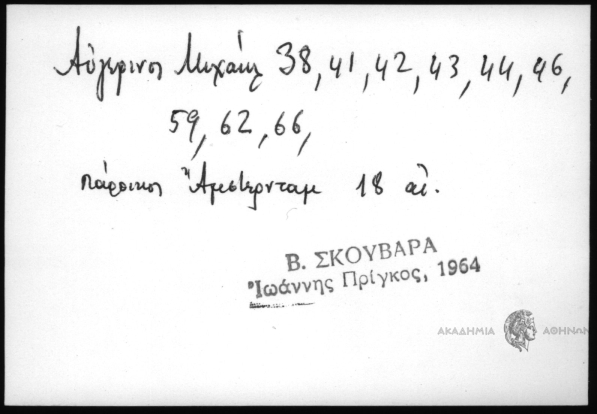 Αὐγερινος Μιχαήλ 38, 41, 42, 43, 44, 46,
59, 62, 66,
πάροικος Ἄμστερνταμ 18 αἰ.
Β. ΣΚΟΥΒΑΡΑ
Ἰωάννης Πρίγκος, 1964
ΑΚΑΔΗΜΙΑ ΑΘΗΝΩΝ